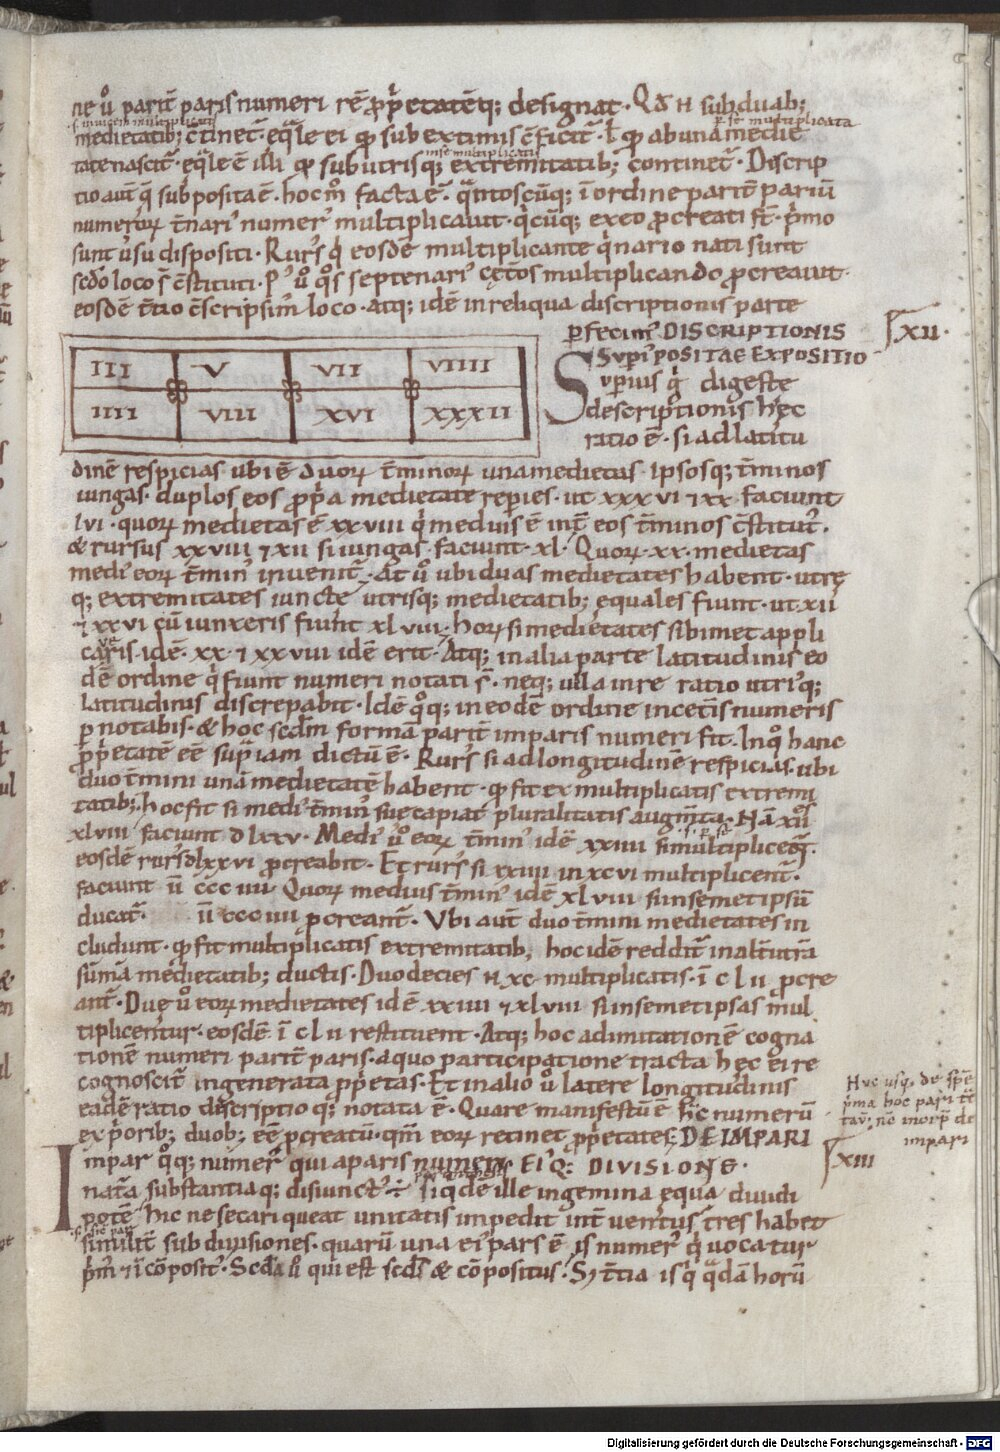 ne ů parit̄ paris numeri rē ꝓp̄etatēq; designat. Qđ N̄ sub duab;
.s. inuicem multiplicatis
p̱ se multiplicata
medietatib; c̄tinet̄. eq̄le ei qđ sub extimis c̄ficit̄. ł qđ ab una medie
in se multiplicatis
tate nascit̄. eq̄le ē illi qđ sub utrisq; extremitatib; continet̄. Descrip
tio aut̄ q̄ subposita ē. hoc m̊ facta ē. q̄ntoscūq; ī ordine parit̄ pariū
numeroꝝ t̄nari' numer' multiplicauit. q̇cūq; ex eo ꝓcreati st̄. p̄mo
sunt ūsu dispositi. Rurs' q̇ eosdē multiplicante q̇nario nati sunt
scđo loco s̄ c̄stituti. P' ů q̊s septenari' cęt̄os multiplicando ꝓcreauit.
eosdē t̄tio c̄scripsim' loco. atq; idē in reliqua discriptionis parte
p̱fecim' DISCRIPTIONIS
XII.
SUP̱I' POSITAE EXPOSITIO
III V VII VIIII
IIII VIII XVI XXXII
Sup̱ius q̇ digeste
descriptionis hęc
ratio ē. si ad latitu
dinē respicias ubi ē duoꝝ t̄minoꝝ una medietas. ipsosq; t̄minos
iungas. duplos eos ꝓp̄a medietate repies. ut xxxvi ⁊ xx faciunt
lvi. quoꝝ medietas ē xxviii q̇ medius ē int̄ eos t̄minos c̄stitut'.
& rursus xxviii ⁊ xii si iungas. faciunt. xl. Quoꝝ. xx. medietas
medi' eoꝝ t̄min' inuenit̄. At ů ubi duas medietates habent. utrę
q; extremitates iunctę utrisq; medietatib; equales fiunt. ut xii
⁊ xxvi cū iunxeris fiunt xlviii. hoꝝ si medietates sibimet appli
caris. idē. xx. ⁊ xxviii idē erit. Atq; in alia parte latitudinis eo
dē ordine q̇ fiunt numeri notati s̄. neq; ulla in re ratio utri'q;
latitudinis discrepabit. Idē q̊q; in eodē ordine in cet̄is numeris
p̱notabis. & hoc scđm formā parit̄ imparis numeri fit. In q̊ hanc
ꝓp̄etatē eē sup̄ iam dictū ē. Rurs' si ad longitudinē respicias. ubi
duo t̄mini unā medietatē habent. qđ fit ex multiplicatis extremi
tatib; hoc fit si medi' t̄min' suę capiat pluralitatis augm̄ta. Nā xii
xlviii faciunt dlxxv. Medi' ů eoꝝ t̄min' idē xxiiii si multiplicet̄.
.s. p̱ se
eosdē rurs' dlxxvi ꝓcreabit. Et rurs' si xxiiii in xcvi multiplicent̄.
faciunt īī ccciiii Quoꝝ medius t̄min' idē xlviii si in semet ipsū
ducat̄. īī ccciiii ꝓcreant̄. Ubi aut̄ duo t̄mini medietates in
cludunt. qđ fit multiplicatis extremitatib; hoc idē reddit̄ in alt̄ut̄ra
sūmā medietatib; ductis. Duodecies N̄ xc multiplicatis. ī clii ꝓcre
ant̄. Duę ů eoꝝ medietates idē xxiiii ⁊ xlviii si in semet ipsas mul
tiplicentur. eosdē ī clii restituent. Atq; hoc ad imitationē cogna
tionē numeri parit̄ paris. a quo participatione tracta hęc ei re
cognoscit̄ ingenerata ꝓp̄etas. Et in alio ů latere longitudinis
eadē ratio descriptioq; notata ē. Quare manifestū ē hc̄ numerū
Huc usq; de sp̄e
p̄ma hoc
impari
ex p̄orib; duob; eē ꝓcreatū. qm̄ eoꝝ retinet ꝓp̄etates. DE IMPARI
XIII
Impar q̊q; numer' qui a paris numeri EI'Q: DIVISIONE.
nat̄a substantiaq; disiunct' ÷ siqdē ille in gemina ęqua diuidi
potē hic ne secari queat unitatis impedit int̄uentus tres habet
similit̄ subdiuisiones. quarū una ei' pars ē is numer' q̇ uocatur
p̄m' ⁊ īcōposit'. Scđa ů qui est scđs & cōpositus. S; t̄tia is q̇ q̄dā horū